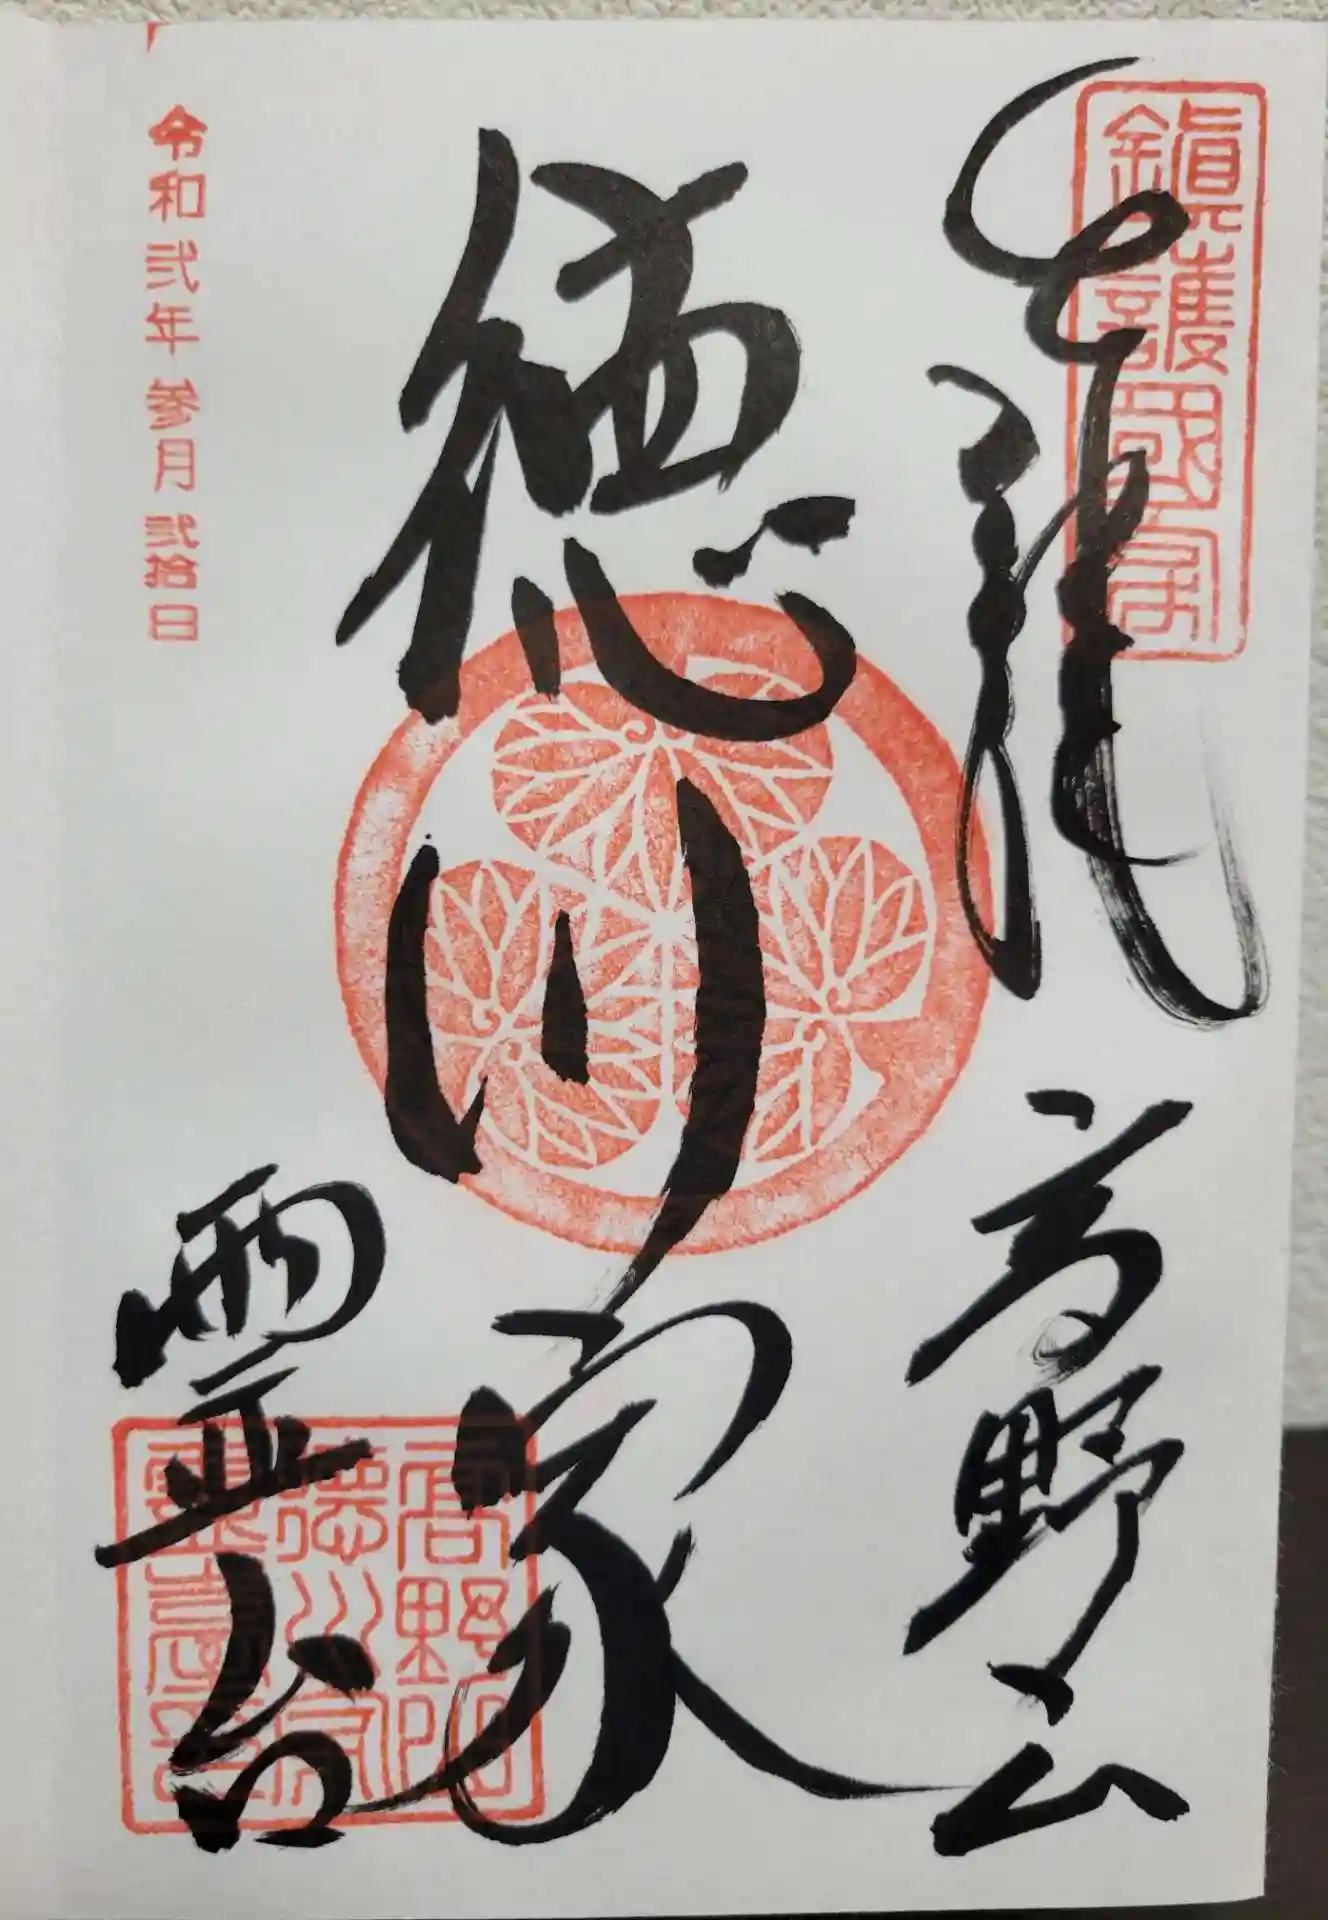 奉拝
高野山
鎮護国家
徳川家
霊台
高野山
徳川家
霊台
令和弐年参月弐拾日